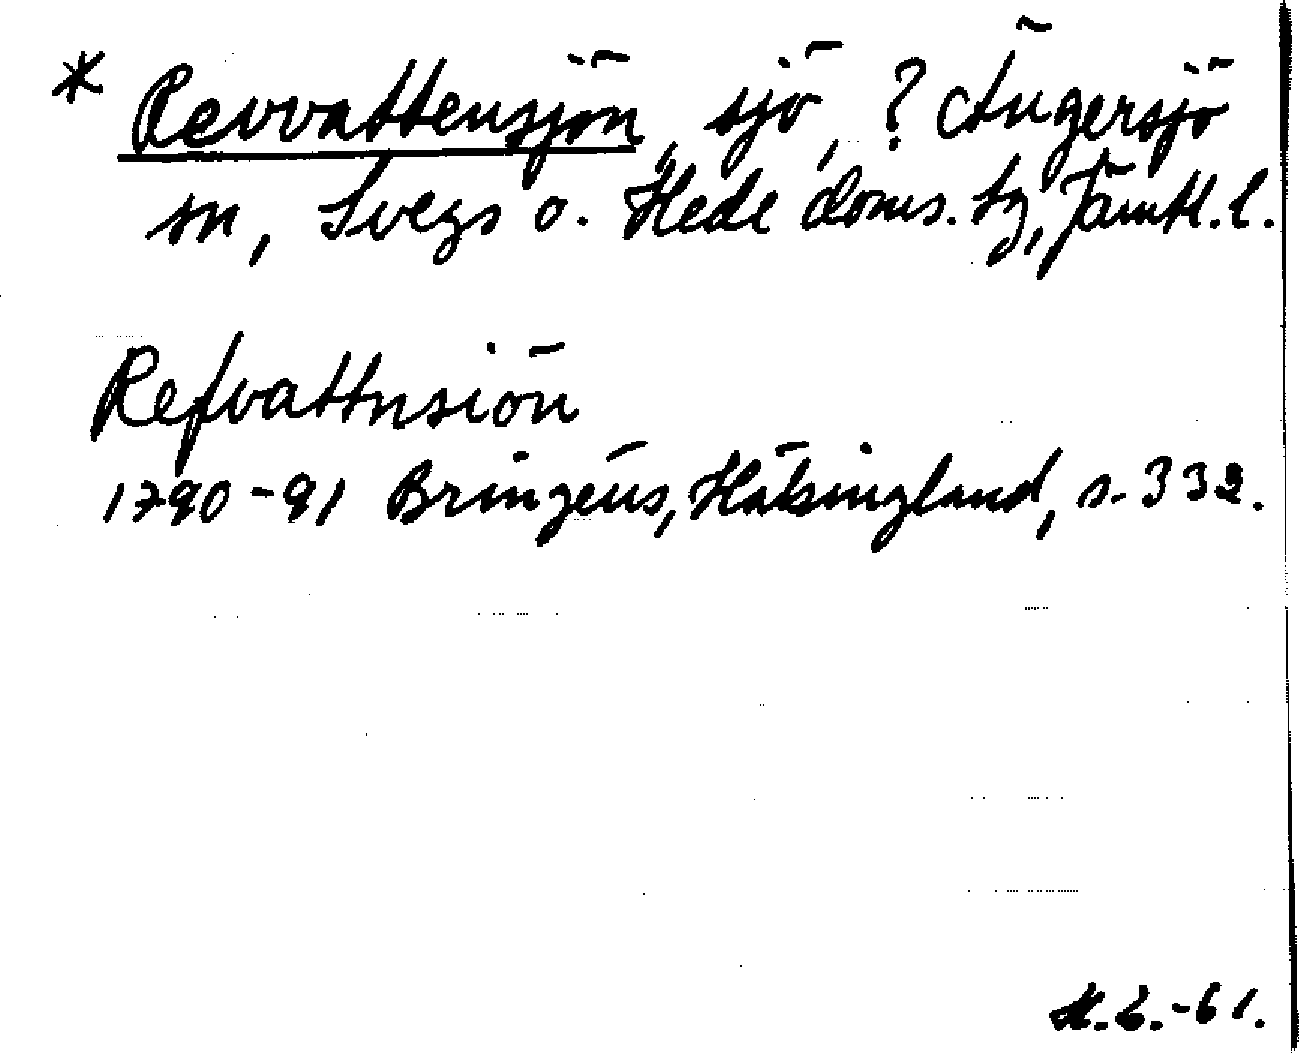 * Revvattensjön, sjö, ? Ängersjö
sn, Svegs o. Hede doms. tg, Jämtl. l.
Refvattnsiön
1790-91 Bringéus, Hälsingland, s. 332.
-61.